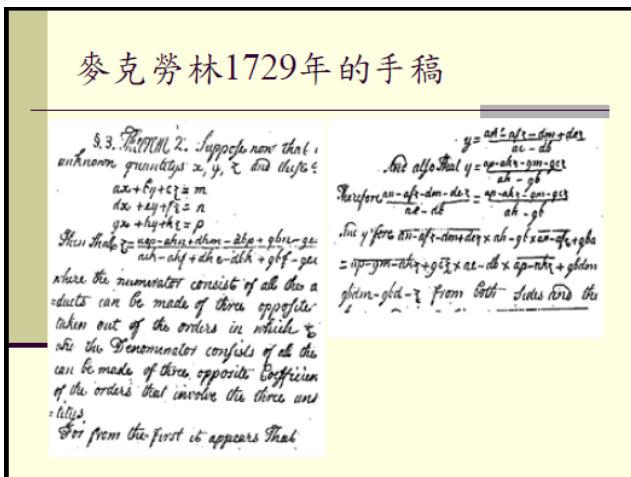 麥克勞林1729年的手稿
§.3. Theorem 2. Suppose now that
unknown quantitys x, y, z and these
ax + by + cz = m
dx + ey + fz = n
gx + hy + kz = p
Then that z = aep-ahn+dhm-dbp+gbn-ge
aek-ahf+dhc-dbk+gbf-gec
where the numerator consist of all the
=ducts can be made of three opposites
taken out of the orders in which z
and the Denominator consists of all the
can be made of three opposite Coefficien
of the orders that involve the three
=titys
For from the first it appears That
y = an-afz-dm+dcz
ae-db
And also that y = ap-akz-gm-gcz
ah-gb
Therefore an-afz-dm-dcz = ap-akz-gm-gcz
ae-db ah-gb
an-afz-dm+dcz × ah-gb
= ap-gm-akz+gcz × ae-db × ap-akz + gbdm
gbdm-gbd-z from both sides and the